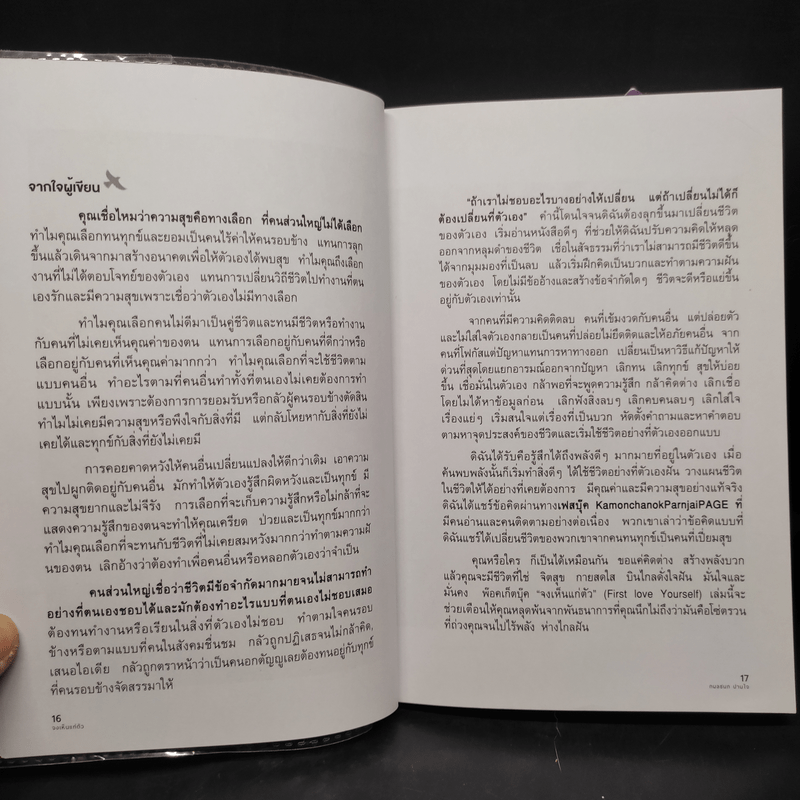 จากใจผู้เขียน
คุณเชื่อไหมว่าความสุขคือทางเลือก ที่คนส่วนใหญ่ไม่ได้เลือก
ทำไมคุณเลือกทนทุกข์และยอมเป็นคนไร้ค่าให้คนรอบข้าง แทนการลุก
ขึ้นแล้วเดินจากมาสร้างอนาคตเพื่อให้ตัวเองได้พบสุข ทำไมคุณถึงเลือก
งานที่ไม่ได้ตอบโจทย์ของตัวเอง แทนการเปลี่ยนวิถีชีวิตไปทำงานที่ตน
เองรักและมีความสุขเพราะเชื่อว่าตัวเองไม่มีทางเลือก
ทำไมคุณเลือกคนไม่ดีมาเป็นคู่ชีวิตและทนมีชีวิตหรือทำงาน
กับคนที่ไม่เคยเห็นคุณค่าของตน แทนการเลือกอยู่กับคนที่ดีกว่าหรือ
เลือกอยู่กับคนที่เห็นคุณค่ามากกว่า ทำไมคุณเลือกที่จะใช้ชีวิตตาม
แบบคนอื่น ทำอะไรตามที่คนอื่นทำทั้งที่ตนเองไม่เคยต้องการทำ
แบบนั้น เพียงเพราะต้องการการยอมรับหรือกลัวผู้คนรอบข้างตัดสิน
ทำไมไม่เคยมีความสุขหรือพึงใจกับสิ่งที่มี แต่กลับโหยหากับสิ่งที่ยังไม่
เคยได้และทุกข์กับสิ่งที่ยังไม่เคยมี
การคอยคาดหวังให้คนอื่นเปลี่ยนแปลงให้ดีกว่าเดิม เอาความ
สุขไปผูกติดอยู่กับคนอื่น มักทำให้ตัวเองรู้สึกผิดหวังและเป็นทุกข์ มี
ความสุขยากและไม่จีรัง การเลือกที่จะเก็บความรู้สึกหรือไม่กล้าที่จะ
แสดงความรู้สึกของตนจะทำให้คุณเครียด ป่วยและเป็นทุกข์มากกว่า
ทำไมคุณเลือกที่จะทนกับชีวิตที่ไม่เคยสมหวังมากกว่าทำตามความฝั
นของตน เลิกอ้างว่าต้องทำเพื่อคนอื่นหรือหลอกตัวเองว่าจำเป็น
คนส่วนใหญ่เชื่อว่าชีวิตมีข้อจำกัดมากมายจนไม่สามารถทำ
อย่างที่ตนเองชอบได้และมักต้องทำอะไรแบบที่ตนเองไม่ชอบเสมอ
ต้องทนทำงานหรือเรียนในสิ่งที่ตัวเองไม่ชอบ ทำตามใจคนรอบ
ข้างหรือตามแบบที่คนในสังคมชื่นชม กลัวถูกปฏิเสธจนไม่กล้าคิด,
เสนอไอเดีย กลัวถูกตราหน้าว่าเป็นคนอกตัญญูเลยต้องทนอยู่กับทุกข์
ที่คนรอบข้างจัดสรรมาให้
16
จงเห็นแก่ตัว
"ถ้าเราไม่ชอบอะไรบางอย่างให้เปลี่ยน แต่ถ้าเปลี่ยนไม่ได้ก็
ต้องเปลี่ยนที่ตัวเอง" คำนี้โดนใจจนดิฉันต้องลุกขึ้นมาเปลี่ยนชีวิต
ของตัวเอง เริ่มอ่านหนังสือดีๆ ที่ช่วยให้ดิฉันปรับความคิดให้หลุด
ออกจากหลุมดำของชีวิต เชื่อในสัจธรรมที่ว่าเราไม่สามารถมีชีวิตดีขึ้น
ได้จากมุมมองที่เป็นลบ แล้วเริ่มฝึกคิดเป็นบวกและทำตามความฝัน
ของตัวเอง โดยไม่มีข้ออ้างและสร้างข้อจำกัดใดๆ ชีวิตจะดีหรือแย่ขึ้น
อยู่กับตัวเองเท่านั้น
จากคนที่มีความคิดติดลบ คนที่เข้มงวดกับคนอื่น แต่ปล่อยตัว
และไม่ใส่ใจตัวเองกลายเป็นคนที่ปล่อยไม่ยึดติดและให้อภัยคนอื่น จาก
คนที่โฟกัสแต่ปัญหาแทนการหาทางออก เปลี่ยนเป็นหาวิธีแก้ปัญหาให้
ด่วนที่สุดโดยแยกอารมณ์ออกจากปัญหา เลิกทน เลิกทุกข์ สุขให้บ่อย
ขึ้น เชื่อมั่นในตัวเอง กล้าพอที่จะพูดความรู้สึก กล้าคิดต่าง เลิกเชื่อ
โดยไม่ได้หาข้อมูลก่อน เลิกฟังสิ่งลบๆ เลิกคบคนลบๆ เลิกใส่ใจ
เรื่องแย่ๆ เริ่มสนใจแต่เรื่องที่เป็นบวก หัดตั้งคำถามและหาคำตอบ
ตามหาจุดประสงค์ของชีวิตและเริ่มใช้ชีวิตอย่างที่ตัวเองออกแบบ
ดิฉันได้รับคือรู้สึกได้ถึงพลังดีๆ มากมายที่อยู่ในตัวเอง เมื่อ
ค้นพบพลังนั้นก็เริ่มทำสิ่งดีๆ ได้ใช้ชีวิตอย่างที่ตัวเองฝัน วางแผนชีวิต
ในชีวิตให้ได้อย่างที่เคยต้องการ มีคุณค่าและมีความสุขอย่างแท้จริง
ดิฉันได้แชร์ข้อคิดผ่านทางเฟสบุ๊ค KamonchanokParnjaiPAGE ที่
มีคนอ่านและคนติดตามอย่างต่อเนื่อง พวกเขาเล่าว่าข้อคิดแบบที่
ดิฉันแชร์ได้เปลี่ยนชีวิตของพวกเขาจากคนทนทุกข์เป็นคนที่เปี่ยมสุข
คุณหรือใคร ก็เป็นได้เหมือนกัน ขอแค่คิดต่าง สร้างพลังบวก
แล้วคุณจะมีชีวิตที่ใช่ จิตสุข กายสดใส บินไกลดั่งใจฝัน มั่นใจและ
มั่นคง พ๊อคเก็ตบุ๊ค "จงเห็นแก่ตัว" (First love Yourself) เล่มนี้จะ
ช่วยเตือนให้คุณหลุดพ้นจากพันธนาการที่คุณนึกไม่ถึงว่ามันคือโซ่ตรวน
ที่ถ่วงคุณจนไปไร้พลัง ห่างไกลฝัน
17
กมลชนก ปานใจ